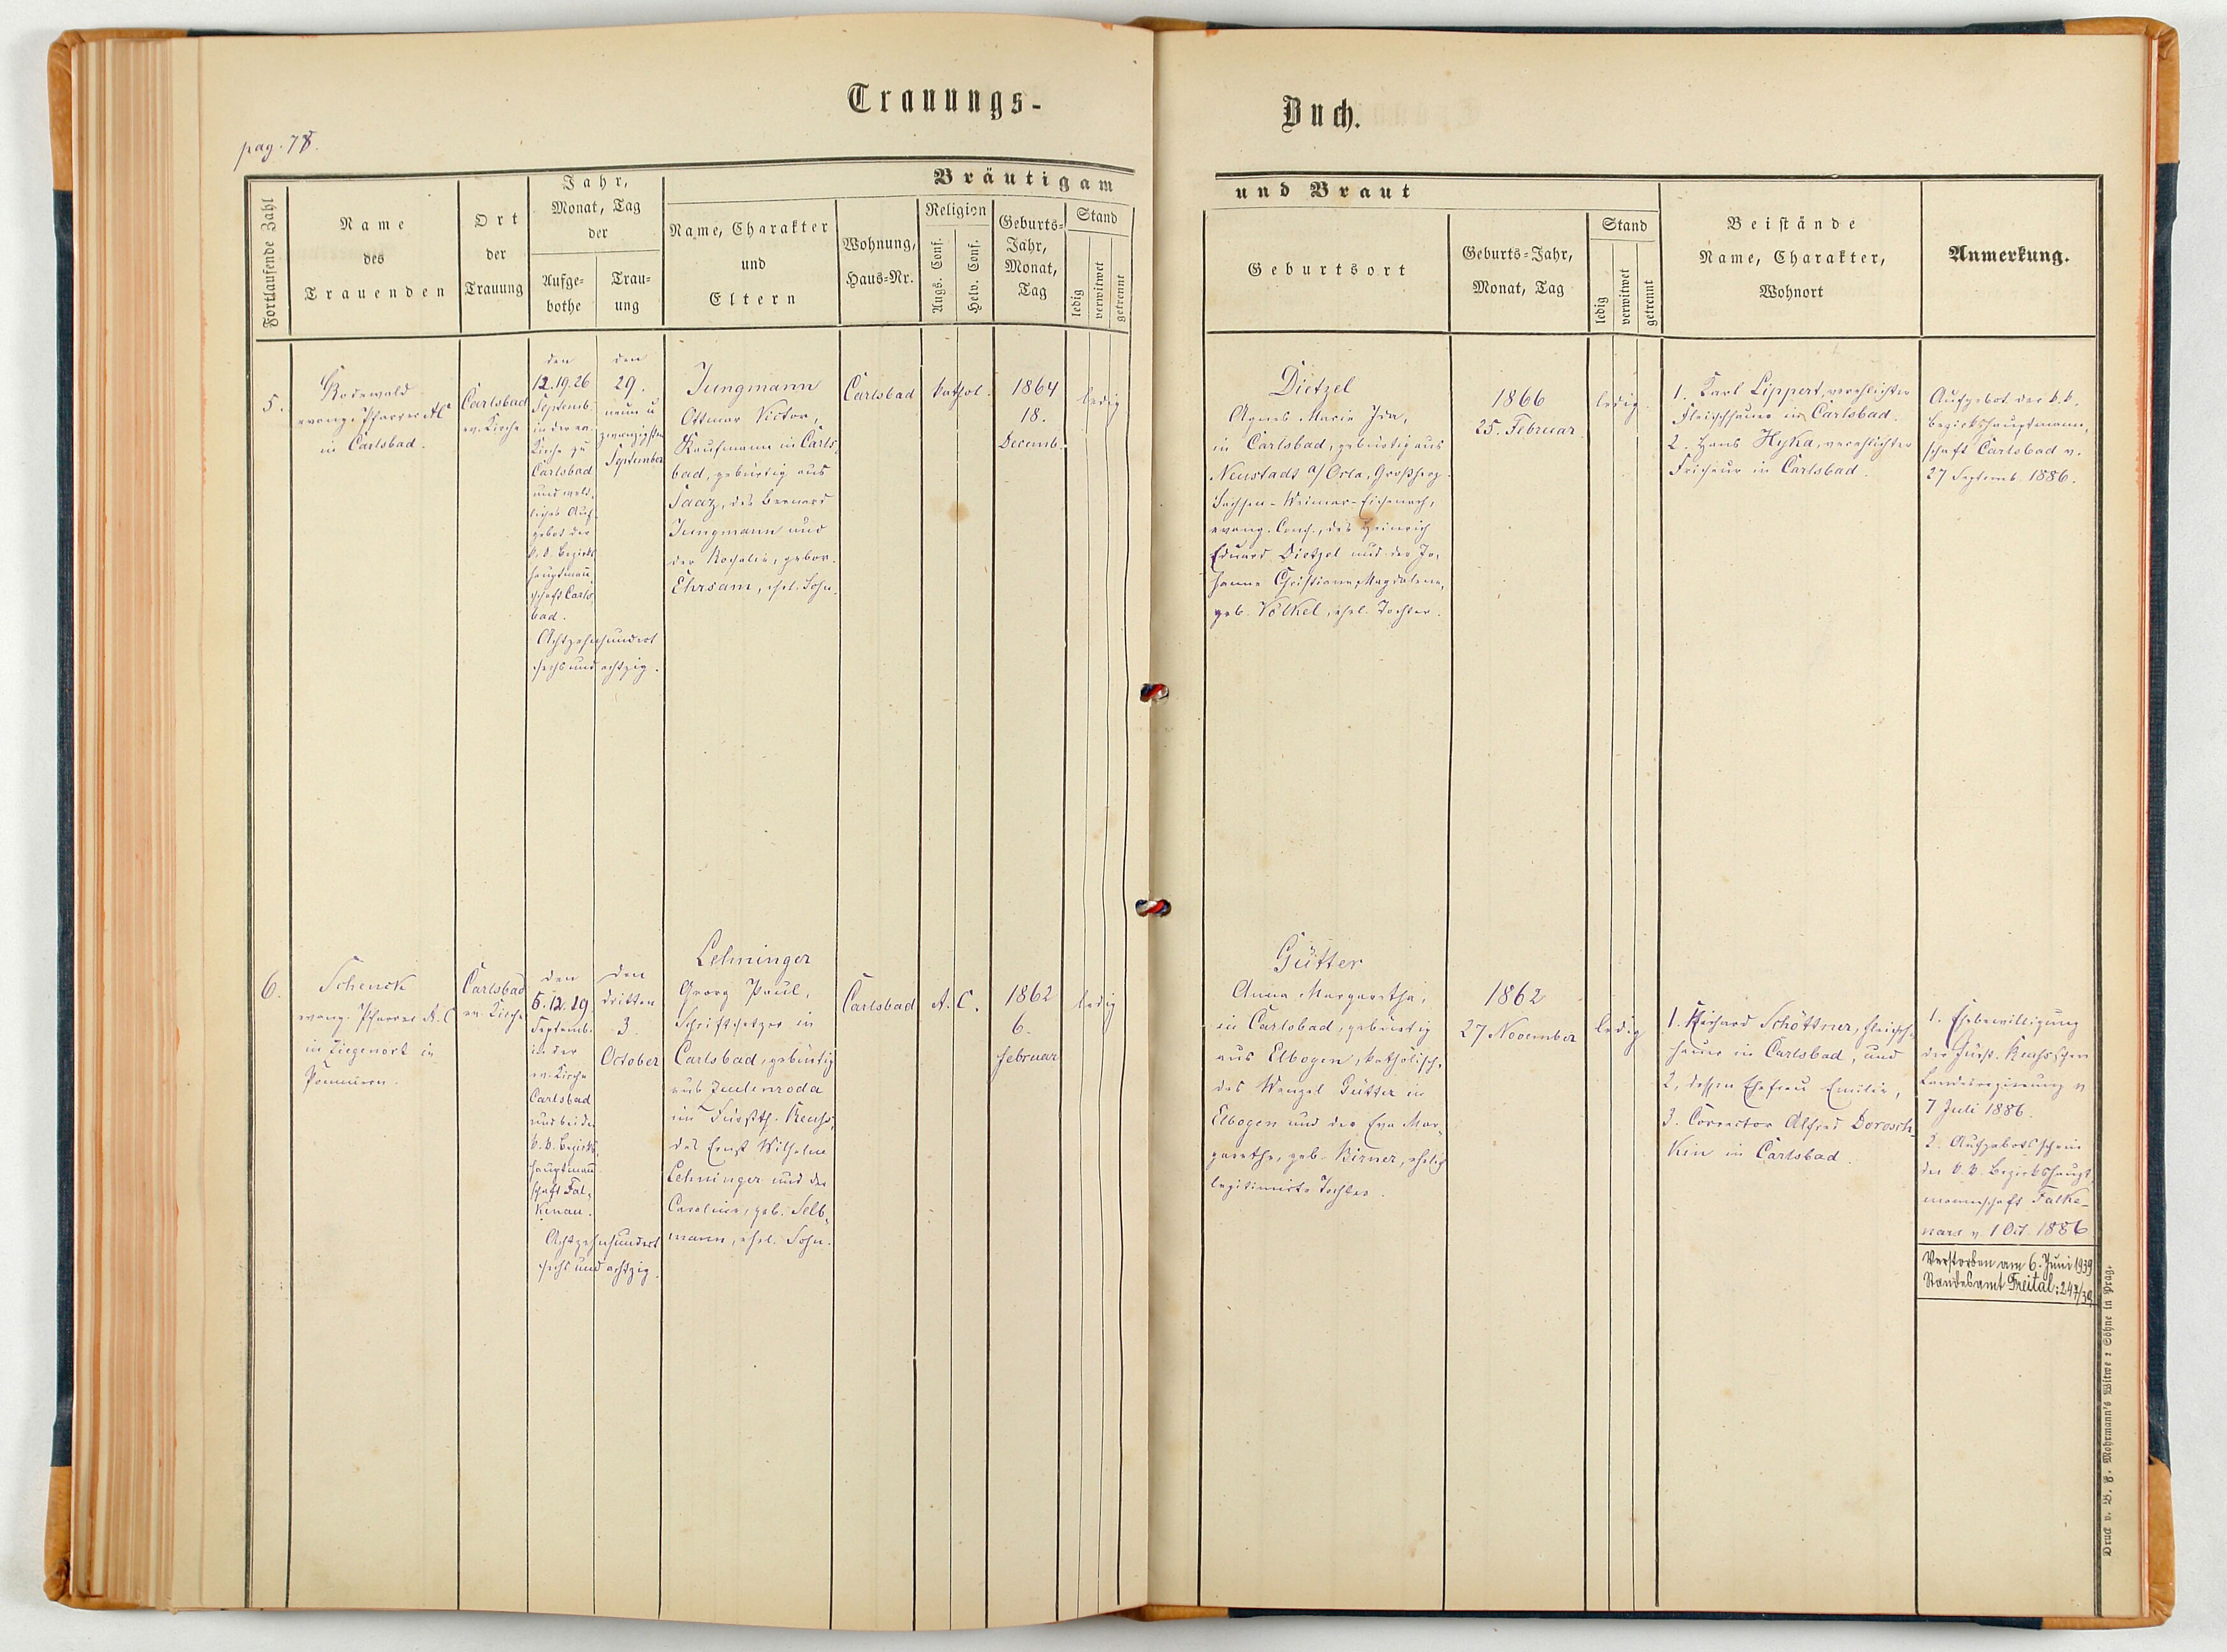 Trauungs-
Buch.
pag. 78.
Fortlaufende Zahl
Name
des
Trauenden
Ort
der
Trauung
Jahr,
Monat, Tag
der
Aufge-
bothe
Trau-
ung
Bräutigam
Name, Charakter
und
Eltern
Wohnung,
Haus-Nr.
Religion
Augs. Conf.
Helv. Conf.
Geburts-
Jahr,
Monat,
Tag
Stand
ledig
verwitwet
getrennt
und Braut
Geburtsort
Geburts-Jahr,
Monat, Tag
Stand
ledig
verwitwet
getrennt
Beistände
Name, Charakter,
Wohnort
Anmerkung.
5.
Rodewald
evang. Pfarrer A C
in Carlsbad.
Carlsbad
ev. Kirche
den
12. 19. 26
Septemb.
in der ev.
Kirche zu
Carlsbad
und welt-
liches Auf-
gebot der
k. k. Bezirks
hauptmann
schaft Carls-
bad.
den
29.
neun u
zwanzigsten
September
Achtzehnhundert
sechs und achtzig.
Jungmann
Ottmar Victor,
Kaufmann in Carls-
bad, gebürtig aus
Saaz, des Bernard
Jungmann und
der Rosalie, gebor.
Ehrsam, ehel. Sohn.
Carlsbad
kathol.
1864
18.
Decemb.
ledig
Dietzel
Agnes Marie Ida,
in Carlsbad, gebürtig aus
Neustadt a/ Orla, Großherz.
Sachsen-Weimar-Eisenach,
evang. Conf., des Heinrich
Eduard Dietzel und der Jo-
hanne Christiane Magdalene,
geb. Völkel, ehel. Tochter.
1866
25. Februar
ledig.
1. Karl Lippert, verehlichter
Fleischhauer in Carlsbad.
2. Hans Hyka, verehlichter
Friseur in Carlsbad.
Aufgebot der k. k.
Bezirkshauptmann-
schaft Carlsbad v.
27 Septemb. 1886.
6.
Schenck
evang. Pfarrer A. C
in Ziegenort in
Pommern.
Carlsbad
ev. Kirche
den
5. 12. 19.
Septemb.
in der
ev. Kirche
Carlsbad
und bei der
k. k. Bezirks-
hauptmann
schaft Fal-
kenau.
den
dritten
3.
October
Achtzehnhundert
sechs und achtzig.
Lehninger
Georg Paul,
Schriftsetzer in
Carlsbad, gebürtig
aus Zeulenroda
im Fürstth. Reuss,
des Ernst Wilhelm
Lehninger und der
Caroline, geb. Selb-
mann, ehel. Sohn.
Carlsbad
A. C.
1862
6.
Februar
ledig
Gütter
Anna Margaretha,
in Carlsbad, gebürtig
aus Elbogen, katholisch,
des Wenzel Gütter in
Elbogen und der Eva Mar-
garethe, geb. Birner, ehelich
legitimirte Tochter.
1862
27 November
ledig
1. Richard Schöttner, Fleisch-
hauer in Carlsbad, und
2, dessen Ehefrau Emilie,
3. Corrector Alfred Dorosch-
kin in Carlsbad.
1. Ehebewilligung
der Fürstl. Reussschen
Landesregierung v
7 Juli 1886.
2. Aufgebotsschein
der k. k. Bezirkshaupt-
mannschaft Falke-
nau v. 1 Oct. 1886
Verstorben am 6. Juni 1939
Standesamt Freital: 247/39
Druck v. B. F. Mohrmann's Witwe & Söhne in Prag.